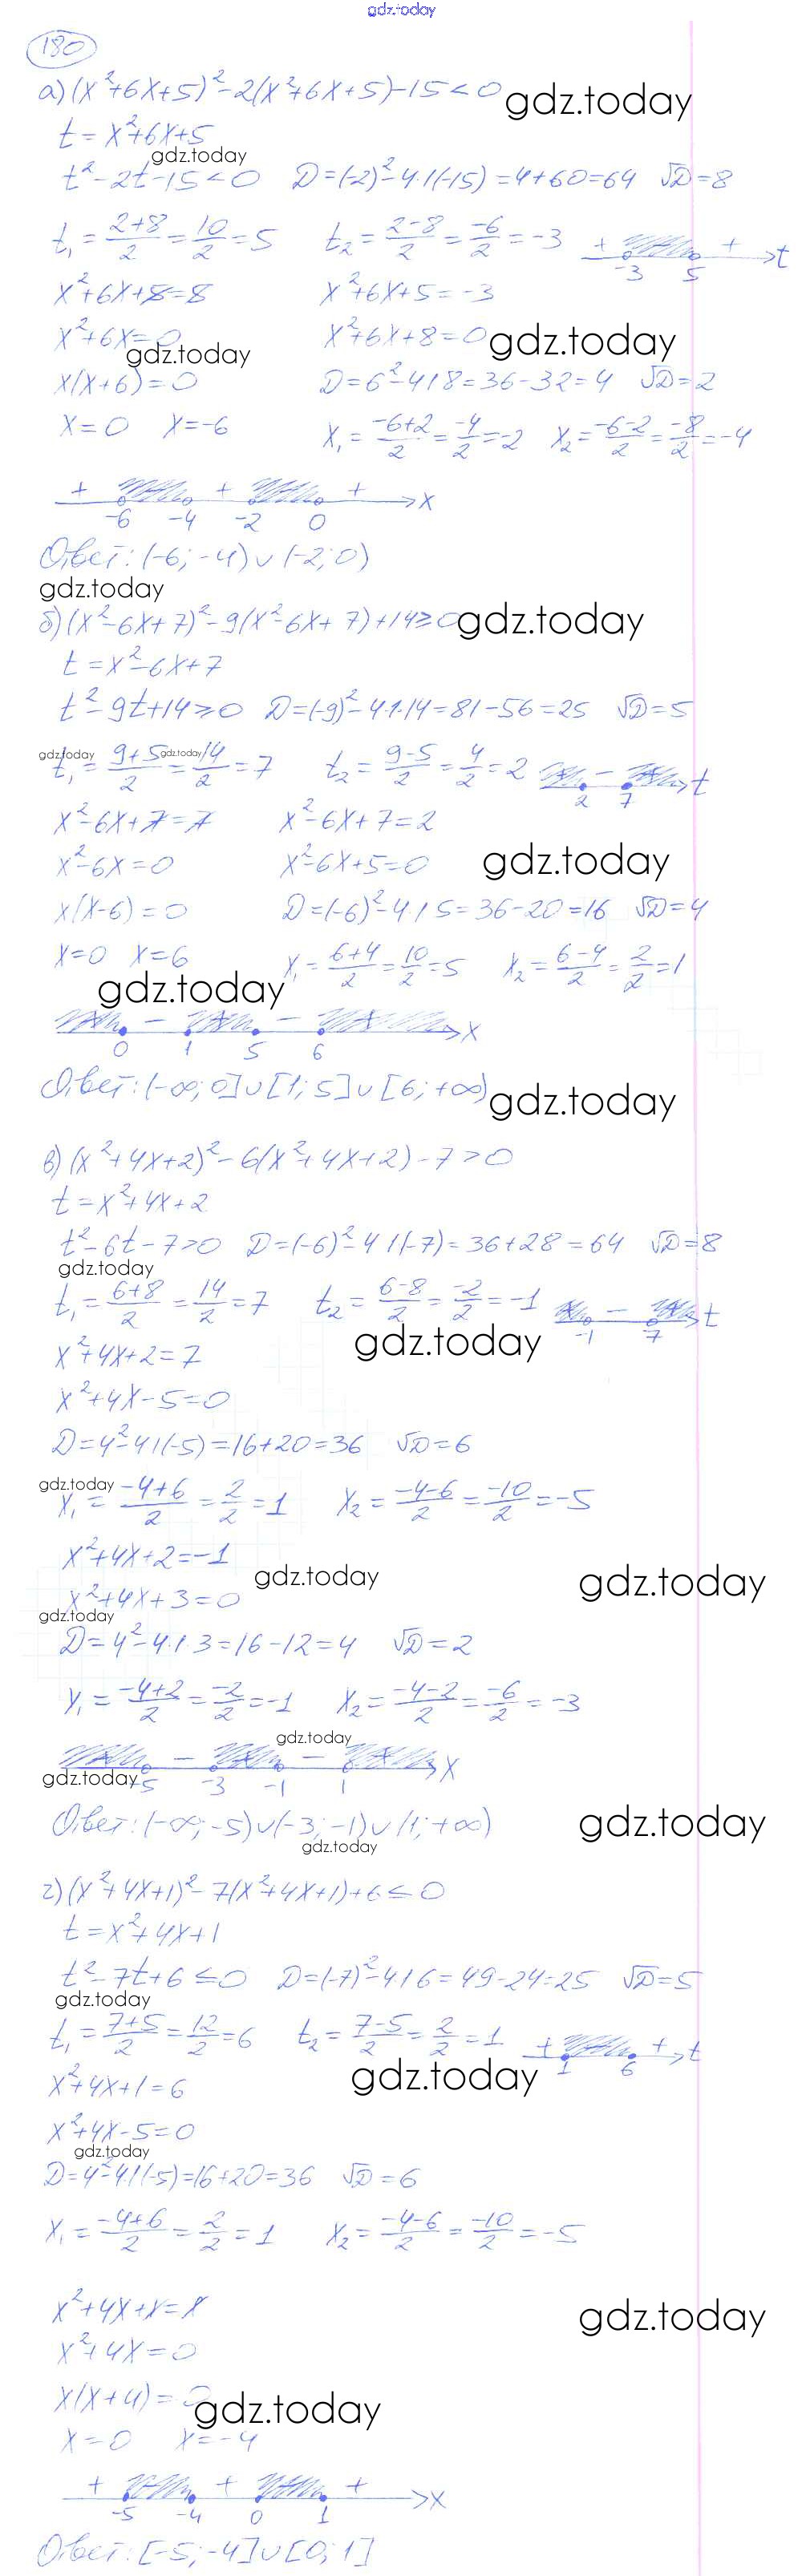 gdz.today
180
а) (x²+6x+5)²-2(x²+6x+5)-15<0 gdz.today
t=x²+6x+5
gdz.today
t²-2t-15<0 D=(-2)²-4·1(-15)=4+60=64 √D=8
t₁=(2+8)/2=10/2=5 t₂=(2-8)/2=-6/2=-3 + + t
-3 5
x²+6x+5=5 x²+6x+5=-3
x²+6x=0 x²+6x+8=0 gdz.today
gdz.today
x(x+6)=0 D=6²-4·1·8=36-32=4 √D=2
x=0 x=-6 x₁=(-6+2)/2=-4/2=-2 x₂=(-6-2)/2=-8/2=-4
+ + + x
-6 -4 -2 0
Ответ: (-6; -4)∪(-2; 0)
gdz.today
б) (x²-6x+7)²-9(x²-6x+7)+14≥0 gdz.today
t=x²-6x+7
t²-9t+14≥0 D=(-9)²-4·1·14=81-56=25 √D=5
gdz.today gdz.today
t₁=(9+5)/2=14/2=7 t₂=(9-5)/2=4/2=2 - t
2 7
x²-6x+7=7 x²-6x+7=2
x²-6x=0 x²-6x+5=0 gdz.today
x(x-6)=0 D=(-6)²-4·1·5=36-20=16 √D=4
x=0 x=6 x₁=(6+4)/2=10/2=5 x₂=(6-4)/2=2/2=1
gdz.today
- - x
0 1 5 6
Ответ: (-∞; 0]∪[1; 5]∪[6; +∞) gdz.today
в) (x²+4x+2)²-6(x²+4x+2)-7>0
t=x²+4x+2
t²-6t-7>0 D=(-6)²-4·1(-7)=36+28=64 √D=8
gdz.today
t₁=(6+8)/2=14/2=7 t₂=(6-8)/2=-2/2=-1 - t
-1 7
gdz.today
x²+4x+2=7
x²+4x-5=0
D=4²-4·1(-5)=16+20=36 √D=6
gdz.today
x₁=(-4+6)/2=2/2=1 x₂=(-4-6)/2=-10/2=-5
x²+4x+2=-1
gdz.today gdz.today
x²+4x+3=0
gdz.today
D=4²-4·1·3=16-12=4 √D=2
x₁=(-4+2)/2=-2/2=-1 x₂=(-4-2)/2=-6/2=-3
gdz.today
- - x
gdz.today -5 -3 -1 1
Ответ: (-∞; -5)∪(-3; -1)∪(1; +∞) gdz.today
gdz.today
г) (x²+4x+1)²-7(x²+4x+1)+6≤0
t=x²+4x+1
t²-7t+6≤0 D=(-7)²-4·1·6=49-24=25 √D=5
gdz.today
t₁=(7+5)/2=12/2=6 t₂=(7-5)/2=2/2=1 + + t
1 6
gdz.today
x²+4x+1=6
x²+4x-5=0
gdz.today
D=4²-4·1(-5)=16+20=36 √D=6
x₁=(-4+6)/2=2/2=1 x₂=(-4-6)/2=-10/2=-5
x²+4x+1=1 gdz.today
x²+4x=0
x(x+4)=0
gdz.today
x=0 x=-4
+ + + x
-5 -4 0 1
Ответ: [-5; -4]∪[0; 1]